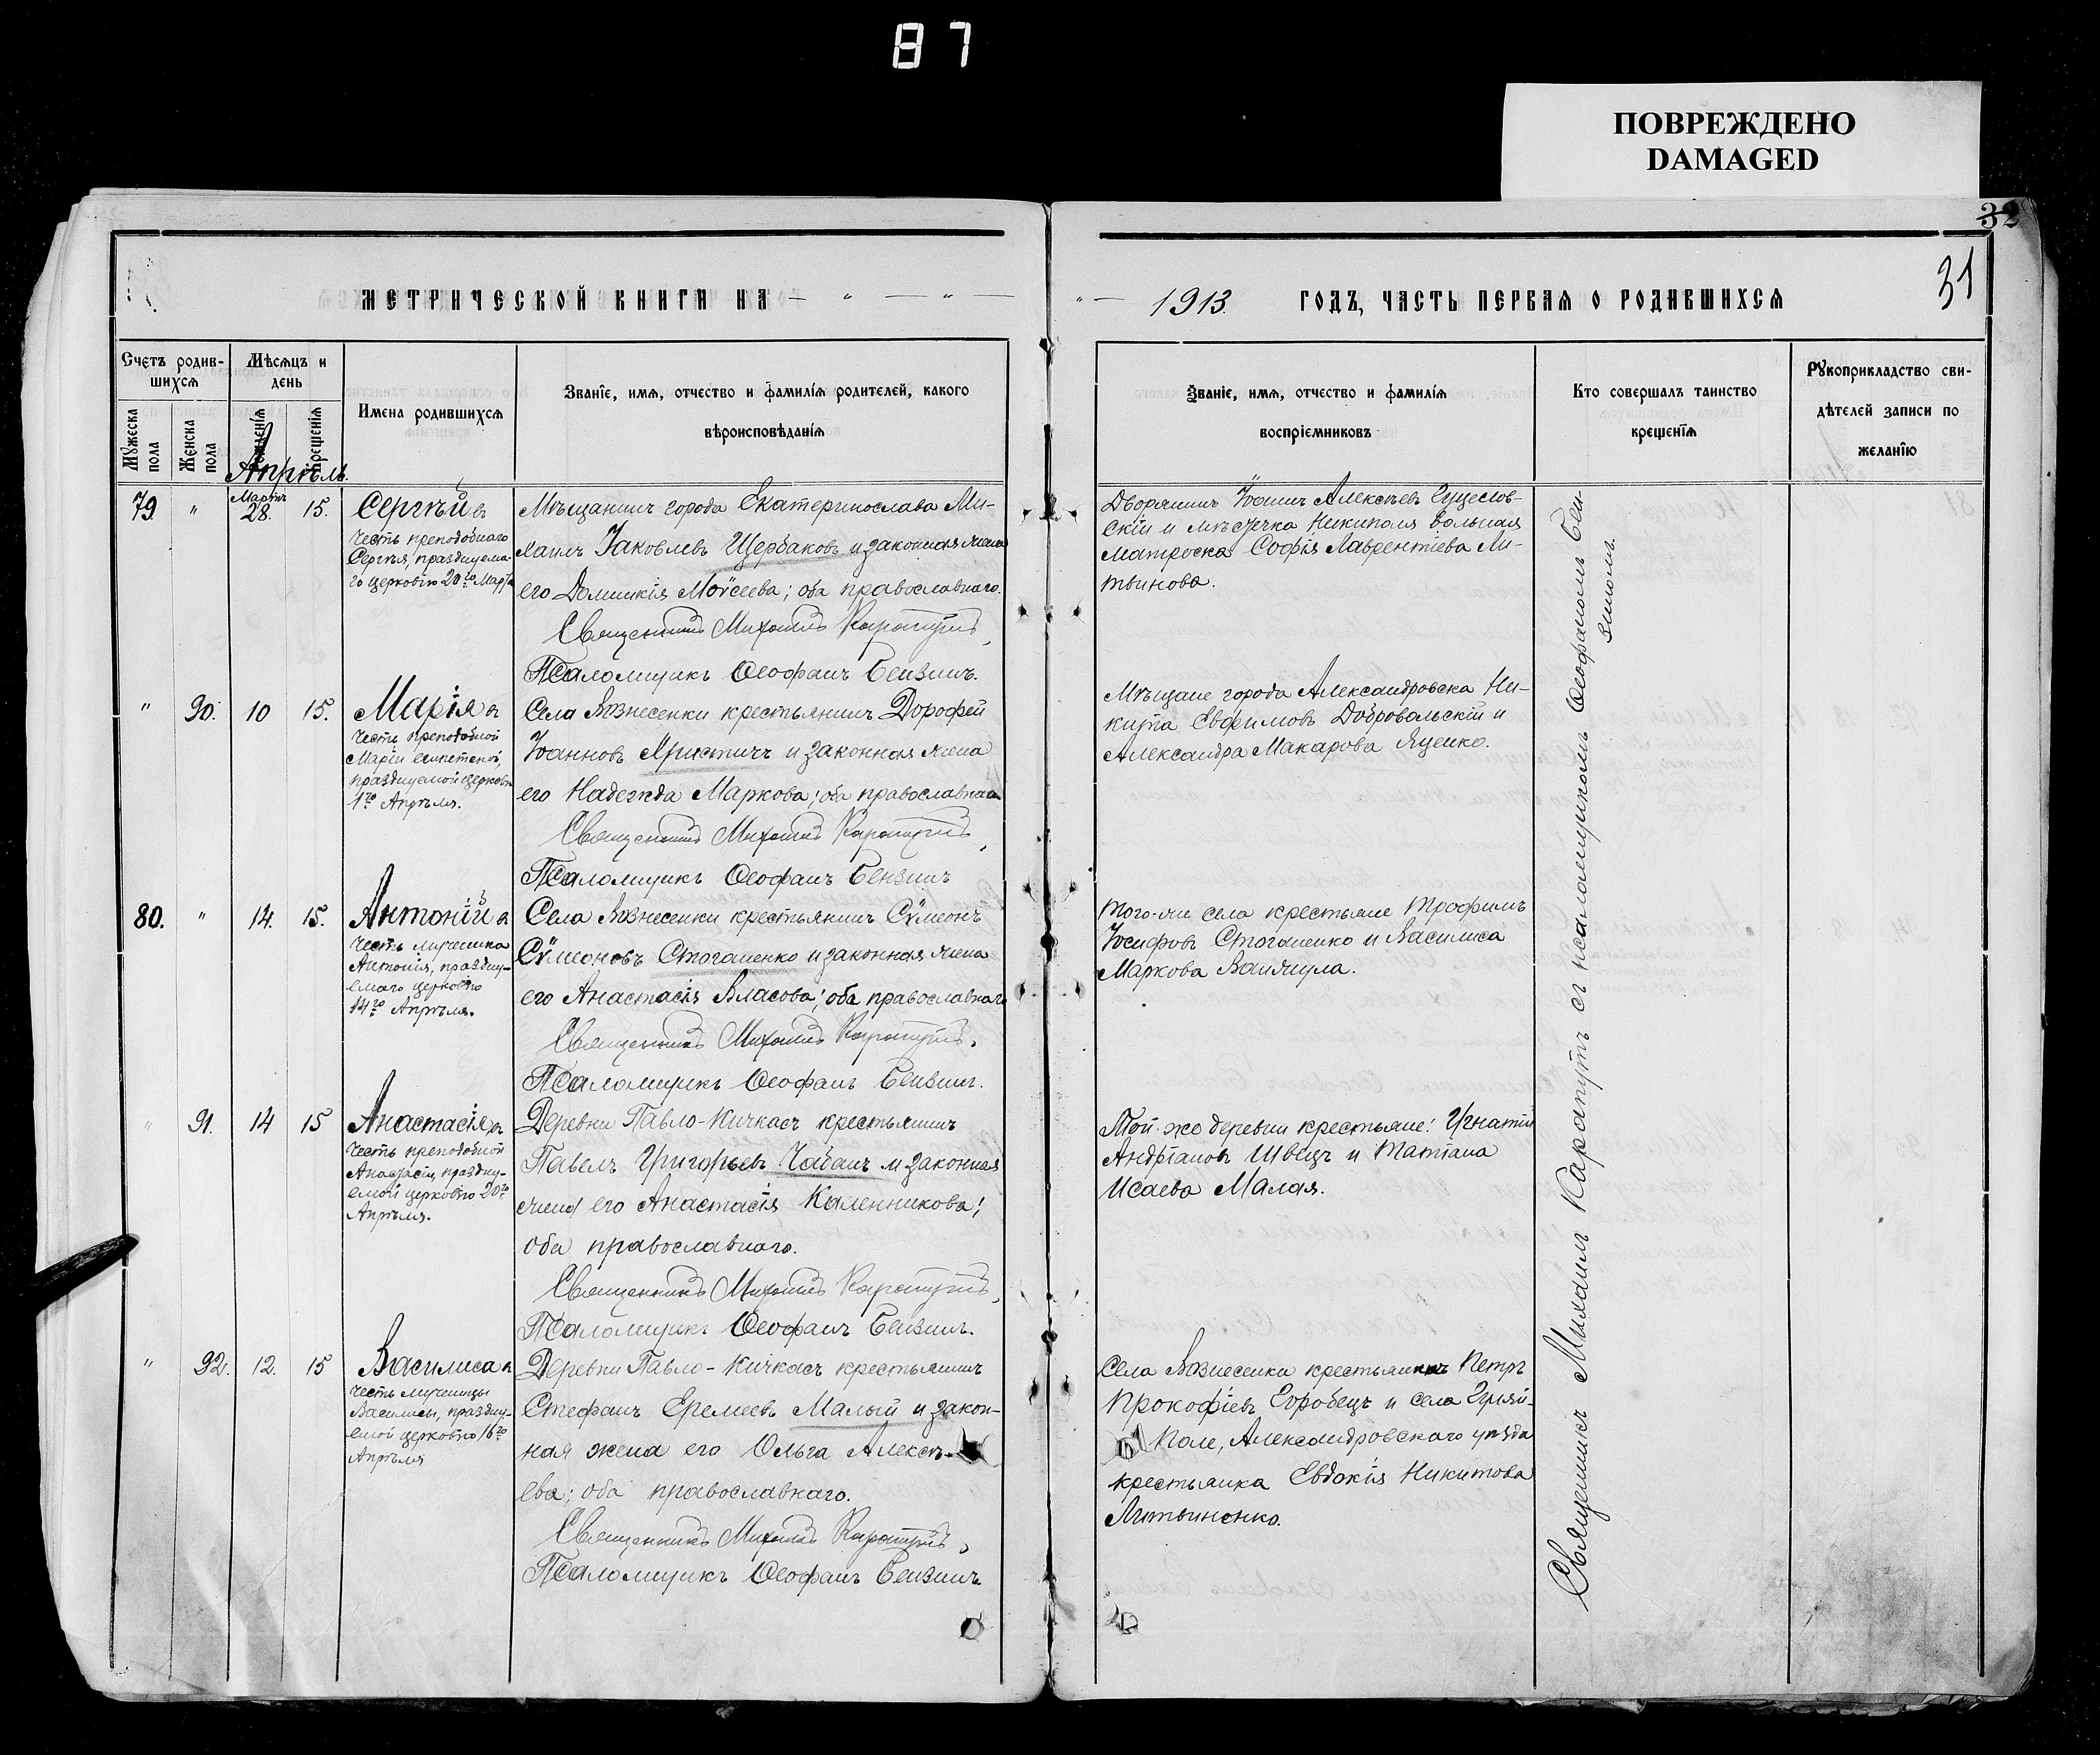 87
ПОВРЕЖДЕНО
DAMAGED
32
31
МЕТРИЧЕСКОЙ КНИГИ НА — " — " —
" — 1913. ГОДЪ, ЧАСТЬ ПЕРВАЯ О РОДИВШИХСЯ
Счетъ родив-
шихся
Мѣсяцъ и
день
Мужеска
пола
Женска
пола
Рожденія
Крещенія
Имена родившихся
Званіе, имя, отчество и фамилія родителей, какого
вѣроисповѣданія
Званіе, имя, отчество и фамилія
воспріемниковъ
Кто совершалъ таинство
крещенія
Рукоприкладство сви-
дѣтелей записи по
желанію
Апрѣль.
79. " Мартъ 28. 15.
Сергѣй въ
честь преподобнаго
Сергѣя, празднуема-
го церковію 20го Марта
Мѣщанинъ города Екатеринослава Ми-
хаилъ Іаковлевъ Щербаковъ и законная жена
его Домникія Моѵсеева; оба православнаго.
Священникъ Михаилъ Карапутъ,
Псаломщикъ Ѳеофанъ Бензинъ.
Дворянинъ Іоаннъ Алексѣевъ
скій и мѣстечка Никиполя вольная
матроска Софія Лаврентіева Ли-
твинова.
" 90. 10 15.
Марія въ
честь преподобной
Маріи египетской,
празднуемой церковію
1го Апрѣля.
Села Вознесенки крестьянинъ Дорофей
Іоанновъ Христичъ и законная жена
его Надежда Маркова; оба православнаго
Священникъ Михаилъ Карапутъ,
Псаломщикъ Ѳеофанъ Бензинъ
Мѣщане города Александровска Ни-
кита Евфимовъ Добровольскій и
Александра Макарова Яценко.
80. " 14. 15.
Антоній въ
честь мученика
Антонія, праздну-
емаго церковію
14го Апрѣля.
Села Вознесенки крестьянинъ Сѵмеонъ
Сѵмеоновъ Стоганенко и законная жена
его Анастасія Власова; оба православнаго
Священникъ Михаилъ Карапутъ.
Псаломщикъ Ѳеофанъ Бензинъ.
Того-же села крестьяне Трофимъ
Іосифовъ Стоганенко и Василиса
Маркова Ванжула.
" 91. 14 15
Анастасія въ
честь преподобной
Анастасіи, праздну-
емой церковію 20го
Апрѣля.
Деревни Павло-Кичкасъ крестьянинъ
Павелъ Григорьевъ Чабанъ и законная
жена его Анастасія Каленникова;
оба православнаго.
Священникъ Михаилъ Карапутъ,
Псаломщикъ Ѳеофанъ Бензинъ.
Той-же деревни крестьяне: Игнатій
Андріановъ Швецъ и Татіана
Исаева Малая.
" 92. 12. 15
Василиса въ
честь мученицы
Василисы, праздну-
емой церковію 16го
Апрѣля
Деревни Павло-Кичкасъ крестьянинъ
Стефанъ Еремеевъ Малый и закон-
ная жена его Ольга Алексѣ-
ева; оба православнаго.
Священникъ Михаилъ Карапутъ,
Псаломщикъ Ѳеофанъ Бензинъ.
Села Вознесенки крестьянинъ Петръ
Прокофіевъ Горобецъ и села Гуляй-
Поле, Александровскаго уѣзда
крестьянка Евдокія Никитова
Литвиненко.
Священникъ Михаилъ Карапутъ съ псаломщикомъ Ѳеофаномъ Бен-
зиномъ.